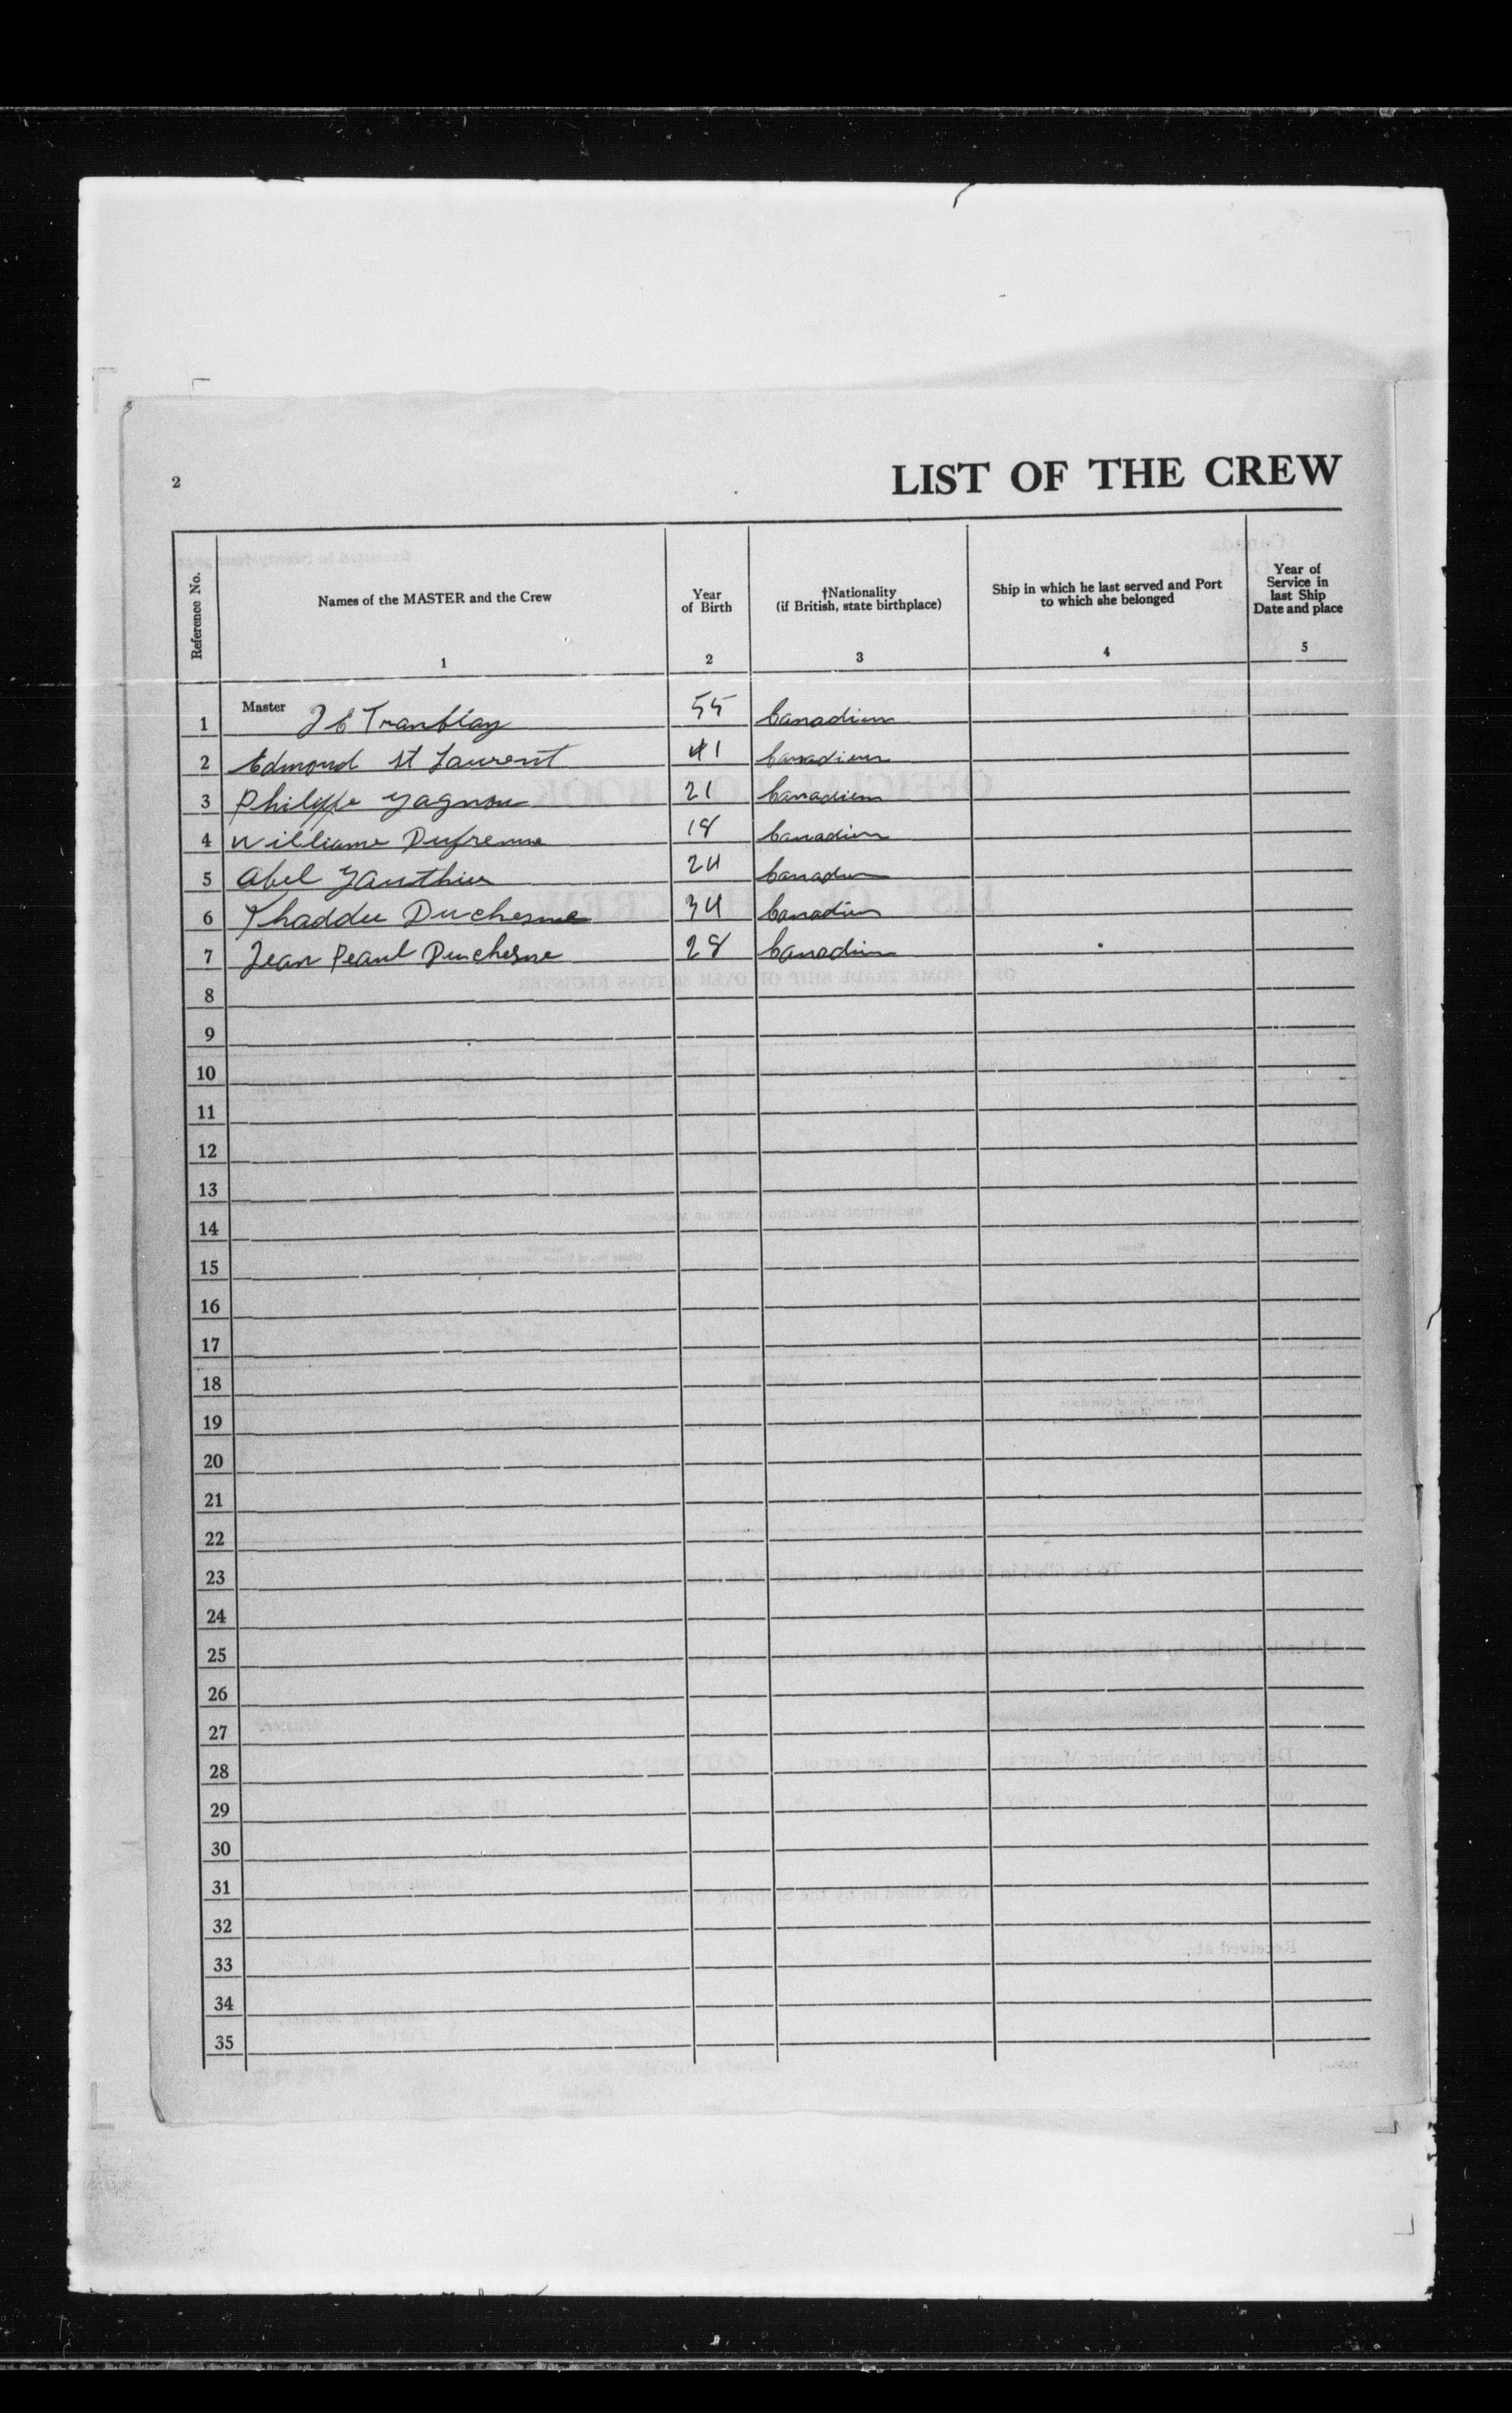 2
LIST OF THE CREW
Reference No.
Names of the MASTER and the Crew
1
Year
of Birth
2
†Nationality
(if British, state birthplace)
3
Ship in which he last served and Port
to which she belonged
4
Year of
Service in
last Ship
Date and place
5
1 Master J E Tranblay 55 Canadien
2 Edmond St Laurent 41 Canadien
3 Philippe Gagnon 21 Canadien
4 Williame Dufresne 18 Canadien
5 Abel Gauthier 24 Canadien
6 Thaddee Duchesne 34 Canadien
7 Jean Peaul Duchesne 28 Canadien
8
9
10
11
12
13
14
15
16
17
18
19
20
21
22
23
24
25
26
27
28
29
30
31
32
33
34
35